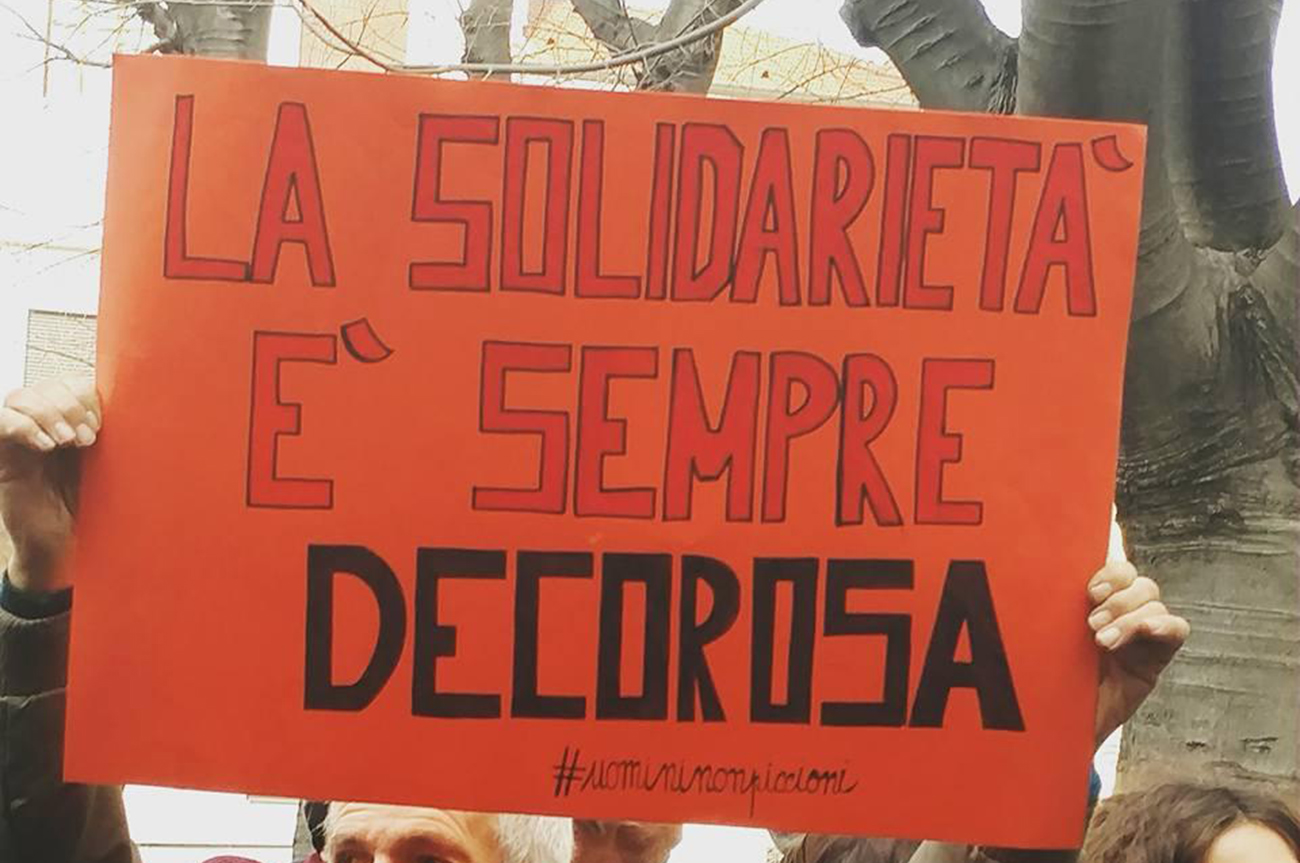 LA SOLIDARIETA`
E` SEMPRE
DECOROSA
#uomininonpiccioni